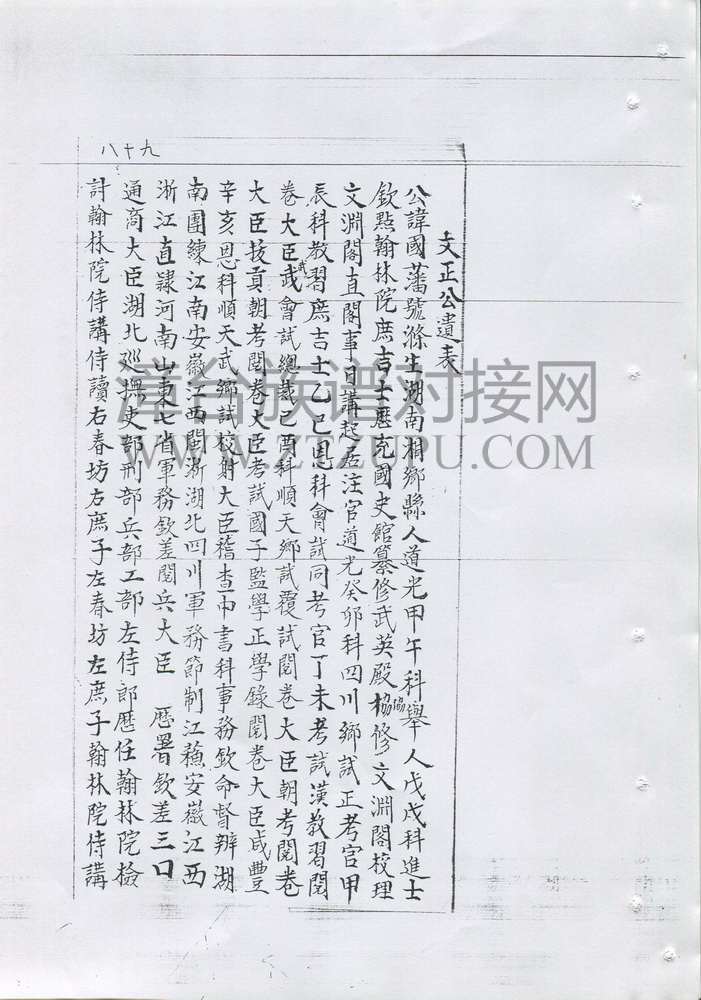 八十九
文正公遺表
公諱國藩號滌生湖南湘鄉縣人道光甲午科舉人戊戌科進士
欽點翰林院庶吉士歷充國史館纂修武英殿協協修文淵閣校理
文淵閣直閣事日講起居注官道光癸卯科四川鄉試正考官甲
辰科教習庶吉士乙巳恩科會試同考官丁未考試漢教習閱
卷大臣武武會試總裁己酉科順天鄉試覆試閱卷大臣朝考閱卷
大臣拔貢朝考閱卷大臣考試國子監學正學錄閱卷大臣咸豐
辛亥恩科順天武鄉試校射大臣稽查中書科事務欽命督辦湖
南團練江南安徽江西閩浙湖北四川軍務節制江蘇安徽江西
浙江直隸河南山東七省軍務欽差閱兵大臣 歷署欽差三口
通商大臣湖北巡撫吏部刑部兵部工部左侍郎歷任翰林院檢
討翰林院侍講侍讀右春坊右庶子左春坊左庶子翰林院侍講
漳台族谱对接网
WWW.ZTZUPU.COM